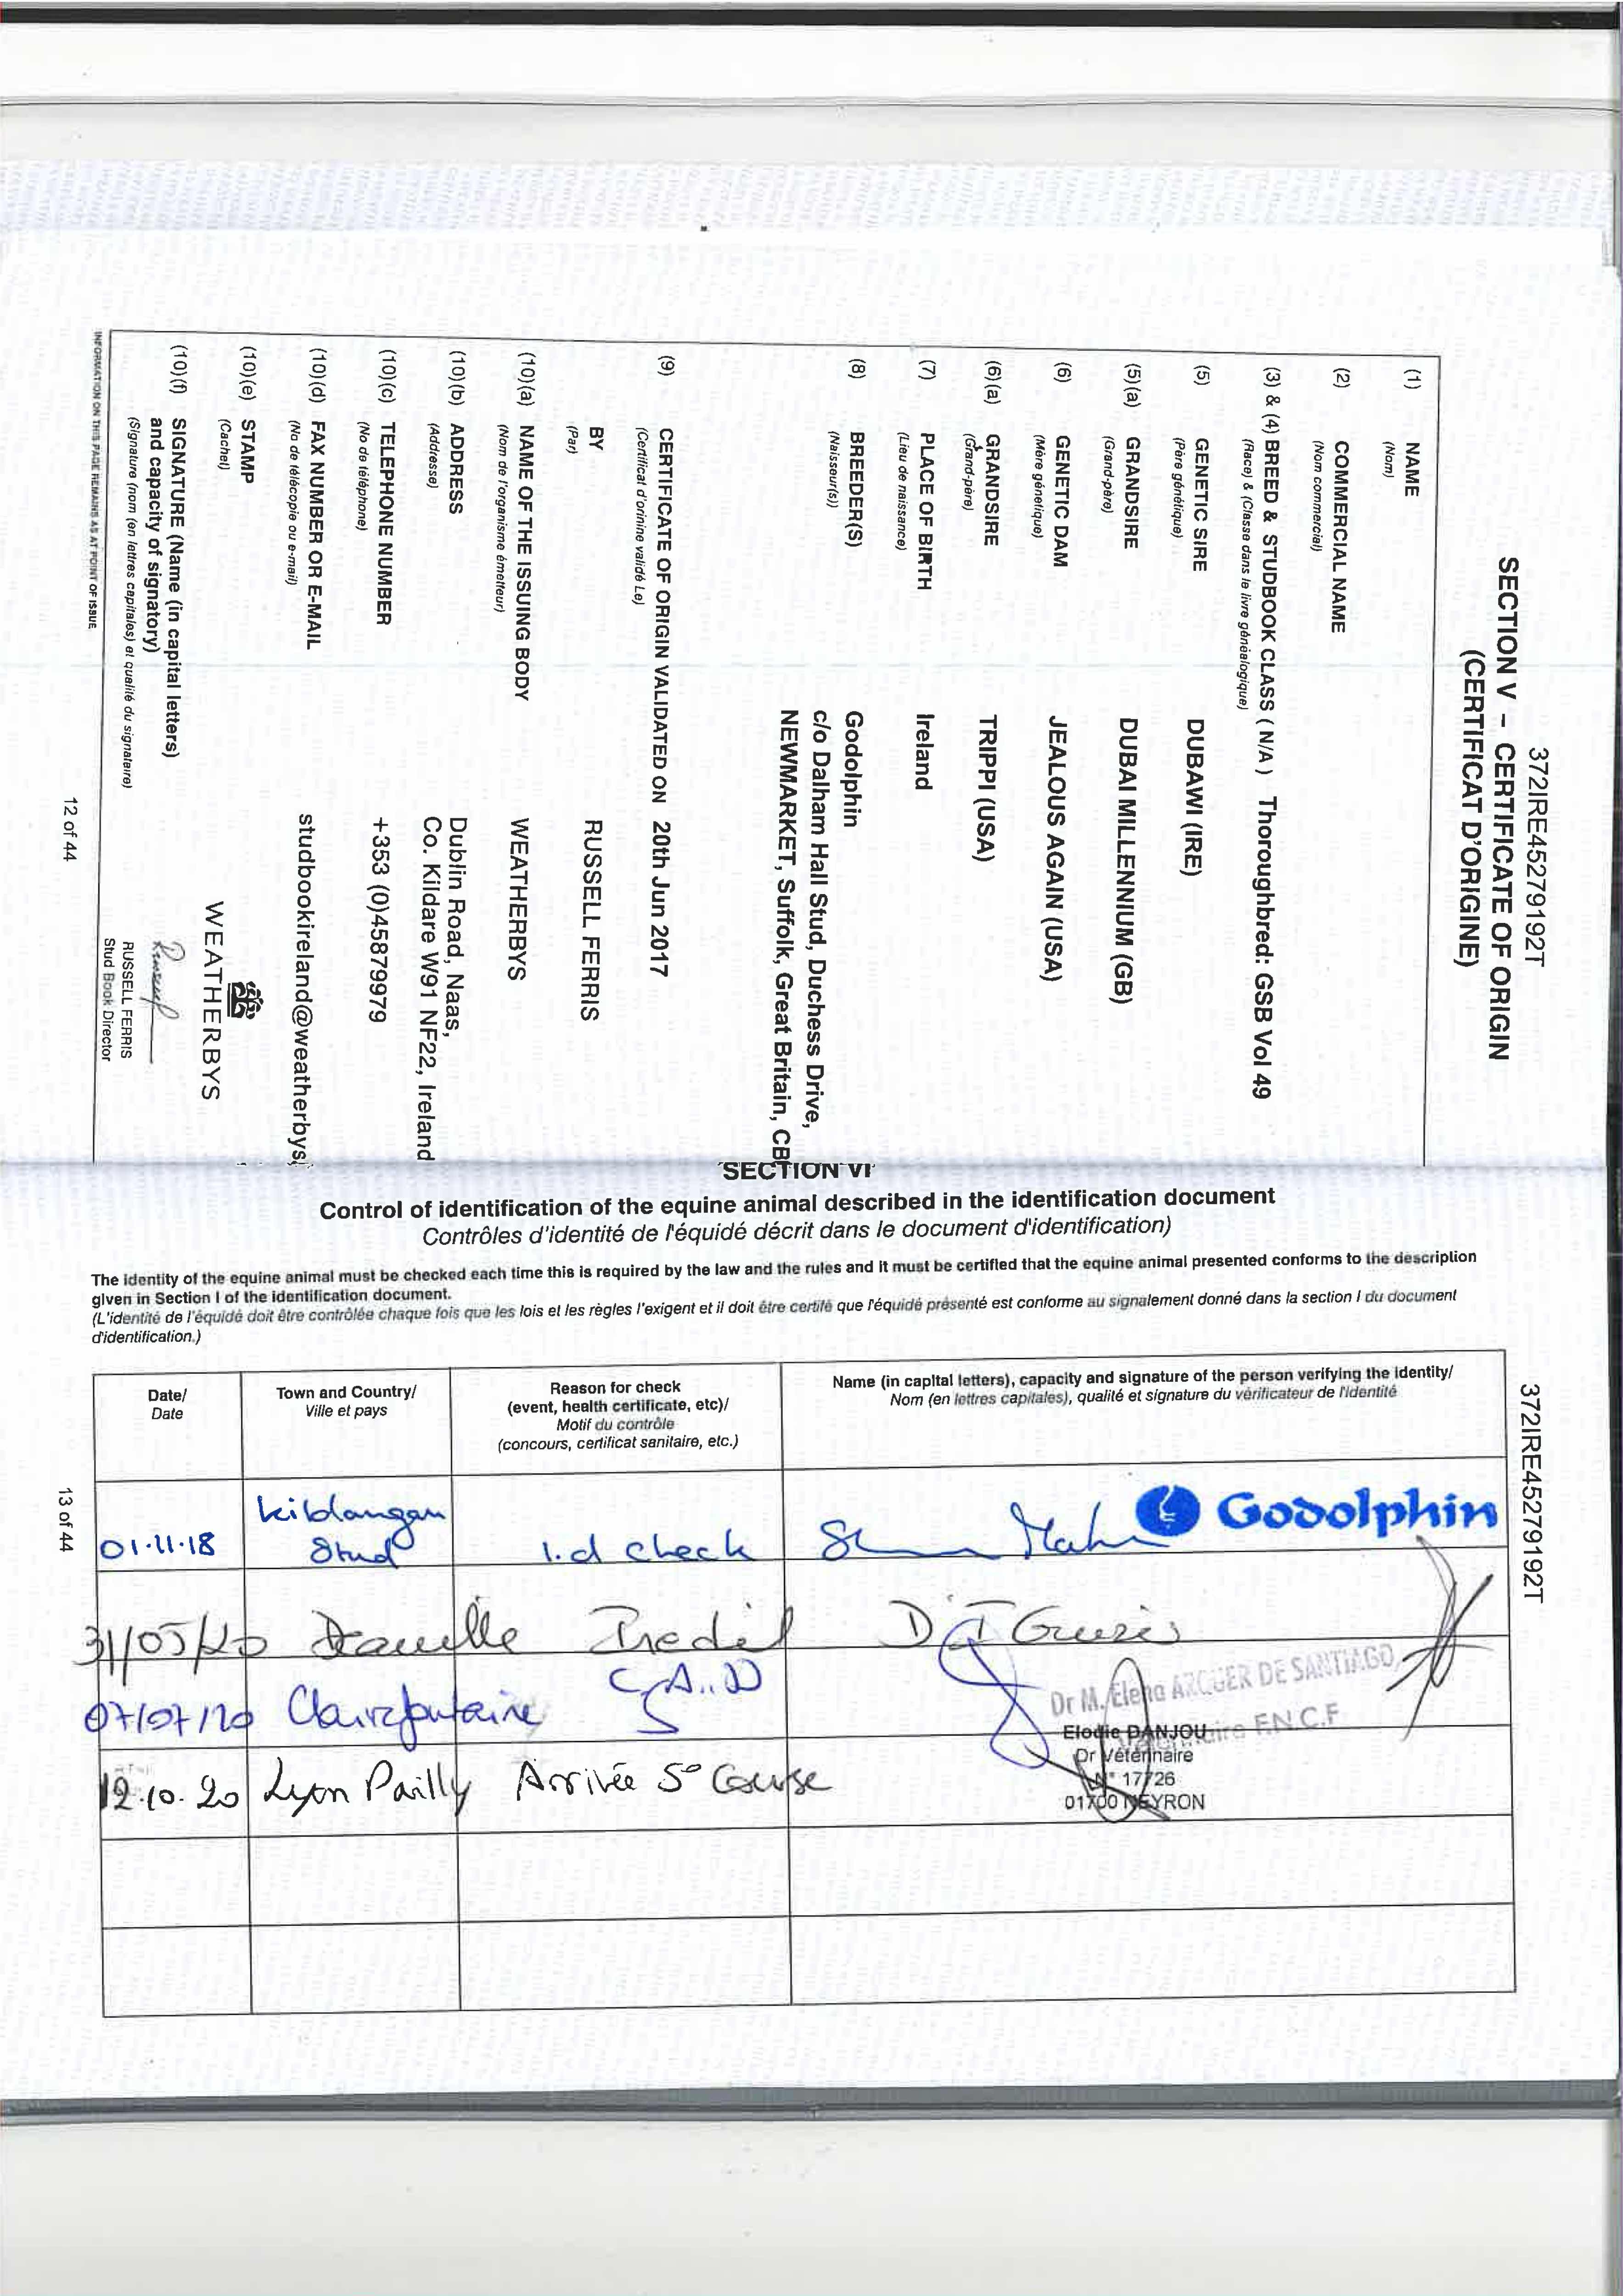 372IRE45279192T
SECTION V – CERTIFICATE OF ORIGIN
(CERTIFICAT D'ORIGINE)
(1) NAME
(Nom)
(2) COMMERCIAL NAME
(Nom commercial)
(3) & (4) BREED & STUDBOOK CLASS ( N/A ) Thoroughbred: GSB Vol 49
(Race) & (Classe dans le livre généalogique)
(5) GENETIC SIRE DUBAWI (IRE)
(Père génétique)
(5)(a) GRANDSIRE DUBAI MILLENNIUM (GB)
(Grand-père)
(6) GENETIC DAM JEALOUS AGAIN (USA)
(Mère génetique)
(6)(a) GRANDSIRE TRIPPI (USA)
(Grand-père)
(7) PLACE OF BIRTH Ireland
(Lieu de naissance)
(8) BREEDER(S) Godolphin
(Naisseur(s)) c/o Dalham Hall Stud, Duchess Drive,
NEWMARKET, Suffolk, Great Britain, CB
(9) CERTIFICATE OF ORIGIN VALIDATED ON 20th Jun 2017
(Certificat d'orinine validé Le)
BY RUSSELL FERRIS
(Par)
(10)(a) NAME OF THE ISSUING BODY WEATHERBYS
(Nom de l'organisme émetteur)
(10)(b) ADDRESS Dublin Road, Naas,
(Addresse) Co. Kildare W91 NF22, Ireland
(10)(c) TELEPHONE NUMBER +353 (0)45879979
(No de téléphone)
(10)(d) FAX NUMBER OR E-MAIL studbookireland@weatherbys
(No de télécopie ou e-mail)
(10)(e) STAMP
(Cachet)
WEATHERBYS
(10)(f) SIGNATURE (Name (in capital letters)
and capacity of signatory)
(Signature (nom (en lettres capitales) et qualité du signataire)
RUSSELL FERRIS
Stud Book Director
INFORMATION ON THIS PAGE REMAINS AS AT POINT OF ISSUE
12 of 44
SECTION VI
Control of identification of the equine animal described in the identification document
Contrôles d'identité de l'équidé décrit dans le document d'identification)
The identity of the equine animal must be checked each time this is required by the law and the rules and it must be certified that the equine animal presented conforms to the description
given in Section I of the identification document.
(L'identité de l'équidé doit être contrôlée chaque fois que les lois et les règles l'exigent et il doit être certifé que l'équidé présenté est conforme au signalement donné dans la section I du document
d'identification.)
372IRE45279192T
Date/
Date
Town and Country/
Ville et pays
Reason for check
(event, health certificate, etc)/
Motif du contrôle
(concours, certificat sanitaire, etc.)
Name (in capital letters), capacity and signature of the person verifying the identity/
Nom (en lettres capitales), qualité et signature du vérificateur de l'identité
01.11.18 Kildangan Stud I.d check Godolphin
31/05/20 Deauville
07/07/20 Clairefontaine
Dr M. Elena ARCUER DE SANTIAGO
F.N.C.F
12.10.20 Lyon Parilly Arrivée 5e Course
Elodie DANJOU
Dr Vétérinaire
N° 17726
01700 NEYRON
13 of 44